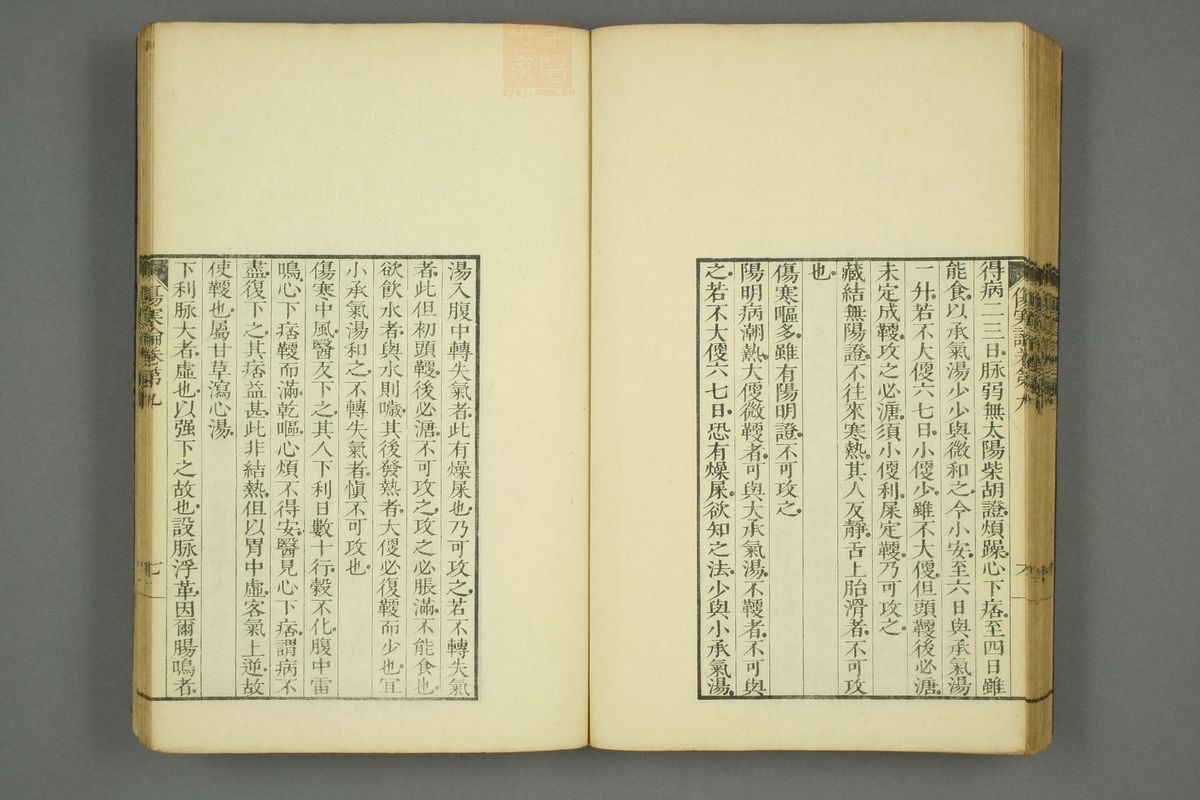 得病二三日脉弱無太陽柴胡證煩躁心下痞至四日雖
能食以承氣湯少少與微和之令小安至六日與承氣湯
一升若不大便六七日小便少雖不大便但頭鞕後必溏
未定成鞕攻之必溏須小便利屎定鞕乃可攻之
藏結無陽證不往來寒熱其人反靜舌上胎滑者不可攻
也
傷寒嘔多雖有陽明證不可攻之
陽明病潮熱大便微鞕者可與大承氣湯不鞕者不可與
之若不大便六七日恐有燥屎欲知之法少與小承氣湯
湯入腹中轉失氣者此有燥屎也乃可攻之若不轉失氣
者此但初頭鞕後必溏不可攻之攻之必脹滿不能食也
欲飲水者與水則噦其後發熱者大便必復鞕而少也宜
小承氣湯和之不轉失氣者慎不可攻也
傷寒中風醫反下之其人下利日數十行穀不化腹中雷
鳴心下痞鞕而滿乾嘔心煩不得安醫見心下痞謂病不
盡復下之其痞益甚此非結熱但以胃中虛客氣上逆故
使鞕也屬甘草瀉心湯
下利脉大者虛也以强下之故也設脉浮革因爾腸鳴者
傷寒論卷第九
七
中醫世家
zysj.com.cn